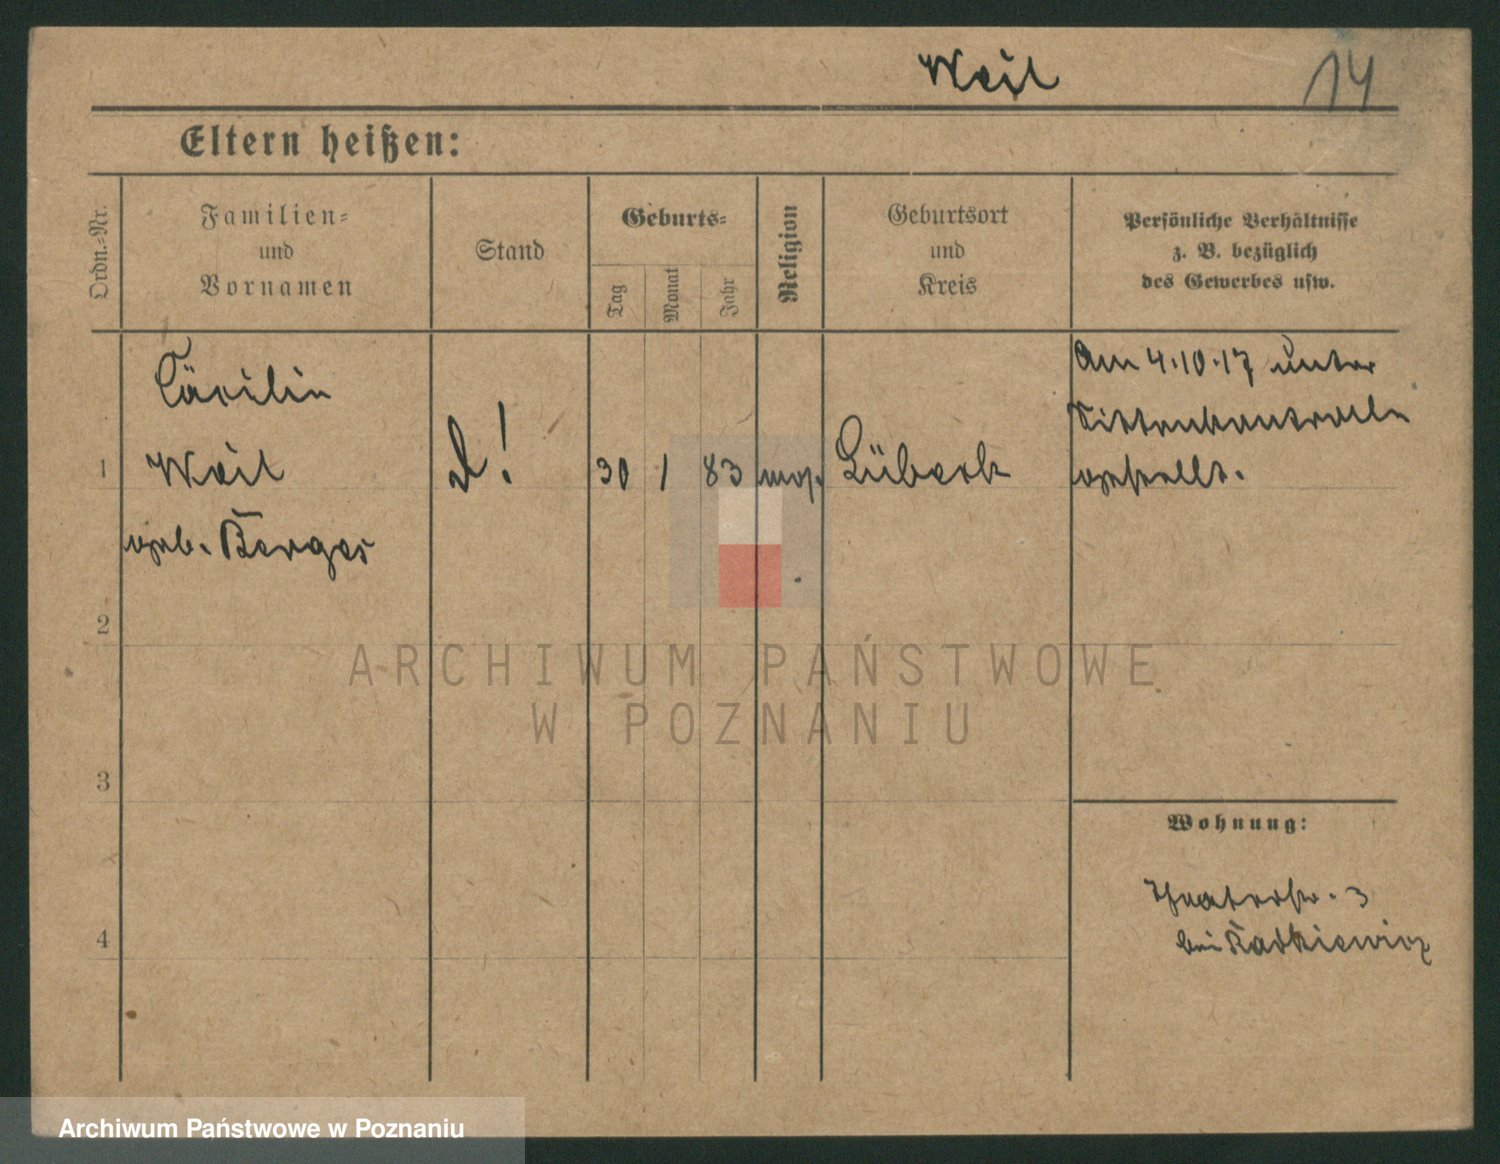 Weil
14
Eltern heißen:
Ordn.-Nr.
Familien-
und
Vornamen
Stand
Geburts-
Tag
Monat
Jahr
Religion
Geburtsort
und
Kreis
Persönliche Verhältnisse
z. B. bezüglich
des Gewerbes usw.
Cäcilie
Weil
geb. Berges
1
30
1
83
mos.
Lübeck
Am 4.10.17 unter
Sittenkontrolle
gestellt.
2
3
4
Wohnung:
Theaterstr. 3
bei Ratkiewicz
ARCHIWUM PAŃSTWOWE
W POZNANIU
Archiwum Państwowe w Poznaniu